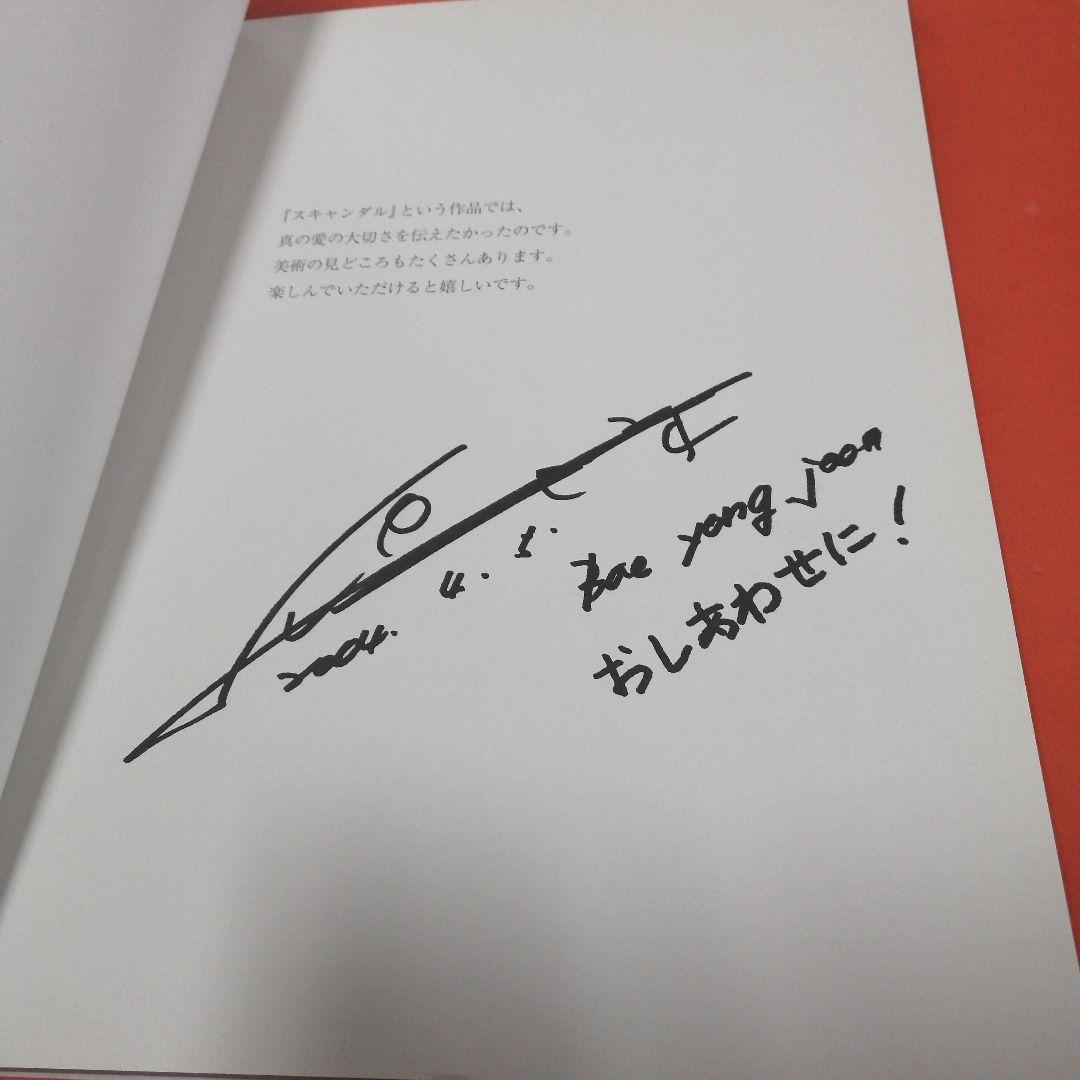 『スキャンダル』という作品では、
真の愛の大切さを伝えたかったのです。
美術の見どころもたくさんあります。
楽しんでいただけると嬉しいです。
2004. 4. 1.
Bae yong joon
おしあわせに!